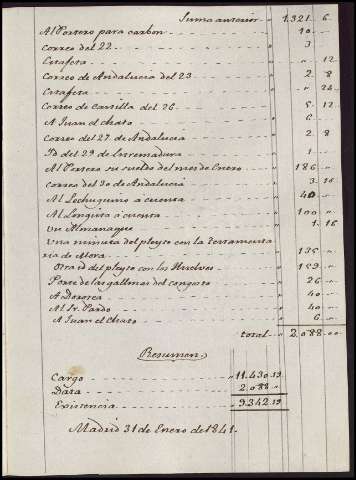 Suma anterior 1.321 6
Al Portero para carbon 10 "
Correo del 22 3
Estafeta " 12
Correo de Andalucia del 23 2 8
Estafeta " 24
Correo de Castilla del 26 5 12
A Juan el chato 6 "
Correo del 27 de Andalucia 2 8
Id del 29 de Extremadura 1 "
Al Portero su sueldo del mes de Enero 186 "
Correo del 30 de Andalucia 3 16
Al Lechuguino a cuenta 40 "
Al Longista a cuenta 100 "
Un Almanaque 1 16
Una minuta del pleyto con la Terramenta
ria de Mora 135 "
Otra id del pleyto con los Huelves 159 "
Porte de las gallinas del congosto 26 "
A Dorotea 40 "
Al Sr. Pardo 40 "
A Juan el Chato 6 "
total 2.088 "
Resumen.
Cargo 11.430 19
Data 2.088 "
Existencia 9.342 19
Madrid 31 de Enero de 1841.